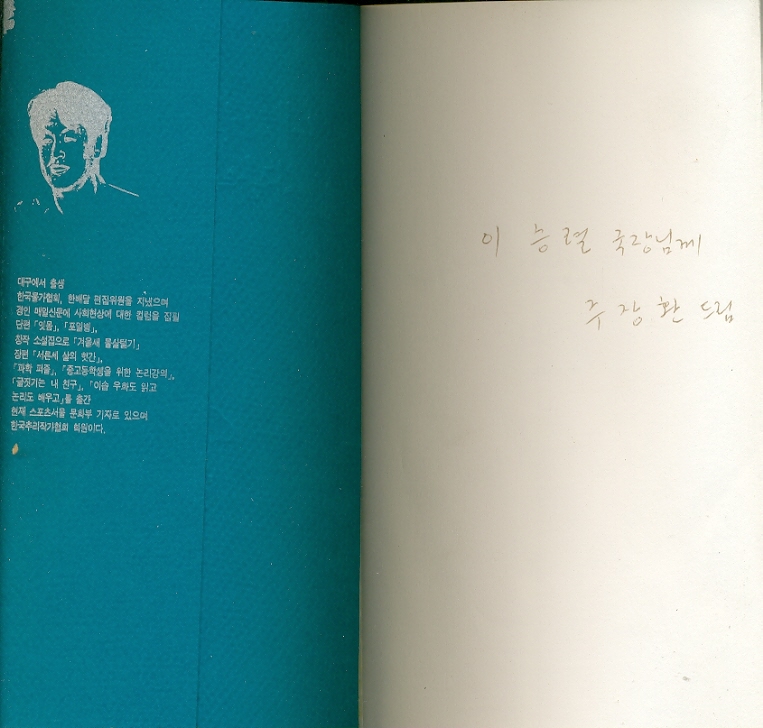 대구에서 출생
한국물가협회, 한배달 편집위원을 지냈으며
경인 매일신문에 사회현상에 대한 컬럼을 집필
단편 「잇몸」, 「포일병」,
창작 소설집으로 「겨울새 물살털기」
장편 「서른세 살의 헛간」,
「과학 퍼즐」, 「중고등학생을 위한 논리강의」,
「글짓기는 내 친구」, 「이솝 우화도 읽고
논리도 배우고」를 출간
현재 스포츠서울 문화부 기자로 있으며
한국추리작가협회 회원이다.
이 승렬 국장님께
주 장 환 드림